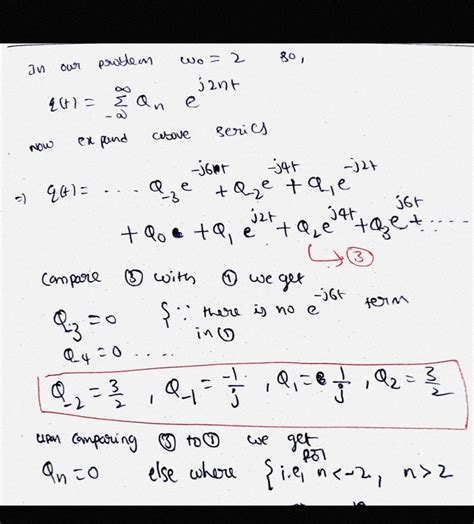 In our problem ω₀ = 2 so,
q(t) = Σ_{-∞}^{∞} Qₙ e^{j2nt}
Now expand above series
⇒ q(t) = .... Q₋₃ e^{-j6t} + Q₋₂ e^{-j4t} + Q₋₁ e^{-j2t}
+ Q₀ + Q₁ e^{j2t} + Q₂ e^{j4t} + Q₃ e^{j6t} + ....
↳ ③
Compare ③ with ① we get
Q₋₃ = 0 {∵ there is no e^{-j6t} term
in ①
Q₋₄ = 0 ....
Q₋₂ = 3/2 , Q₋₁ = -1/j , Q₁ = 1/j , Q₂ = 3/2
upon comparing ③ to ① we get
Qₙ = 0 else where {i.e, for n < -2, n > 2